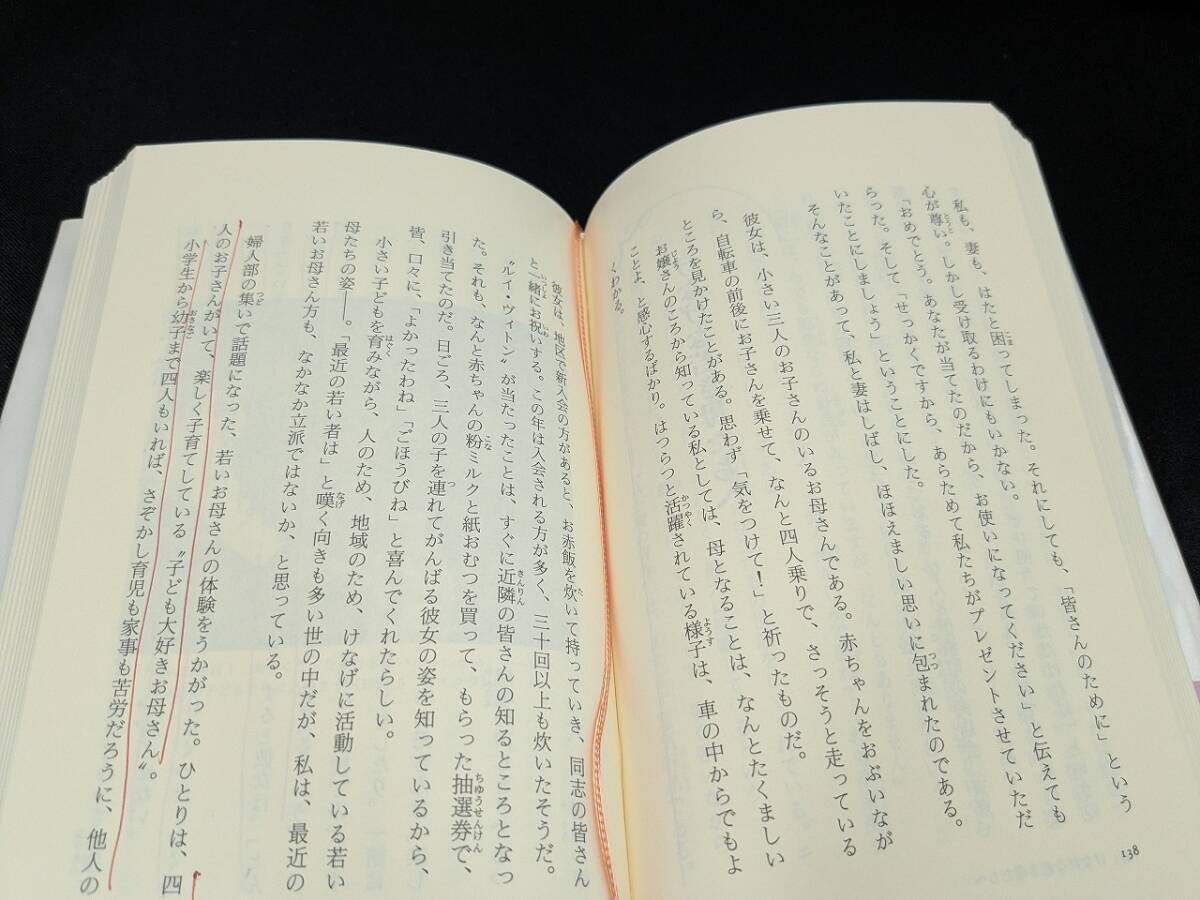 「私も、妻も、はたと困ってしまった。それにしても、「皆さんのために」という
心が尊い。しかし受け取るわけにもいかない。
「おめでとう。あなたが当てたのだから、お使いになってください」と伝えても
らった。そして「せっかくですから、あらためて私たちがプレゼントさせていただ
いたことにしましょう」ということにした。
そんなことがあって、私と妻はしばし、ほほえましい思いに包まれたのである。
彼女は、小さい三人のお子さんのいるお母さんである。赤ちゃんをおぶいなが
ら、自転車の前後にお子さんを乗せて、なんと四人乗りで、さっそうと走っている
ところを見かけたことがある。思わず「気をつけて！」と祈ったものだ。
お嬢さんのころから知っている私としては、母となることは、なんとたくましい
ことよ、と感心するばかり。はつらつと活躍されている様子は、車の中からでもよ
くわかる。
138
彼女は、地区で新入会の方があると、お赤飯を炊いて持っていき、同志の皆さん
と一緒にお祝いする。この年は入会される方が多く、三十回以上も炊いたそうだ。
〝ルイ・ヴィトン〟が当たったことは、すぐに近隣の皆さんの知るところとなっ
た。それも、なんと赤ちゃんの粉ミルクと紙おむつを買って、もらった抽選券で、
引き当てたのだ。日ごろ、三人の子を連れてがんばる彼女の姿を知っているから、
皆、口々に、「よかったわね」「ごほうびね」と喜んでくれたらしい。
小さい子どもを育みながら、人のため、地域のため、けなげに活動している若い
母たちの姿――。「最近の若い者は」と嘆く向きも多い世の中だが、私は、最近の
若いお母さん方も、なかなか立派ではないか、と思っている。
婦人部の集いで話題になった、若いお母さんの体験をうかがった。ひとりは、四
人のお子さんがいて、楽しく子育てしている〝子ども大好きお母さん〟。
小学生から幼子まで四人もいれば、さぞかし育児も家事も苦労だろうに、他人の